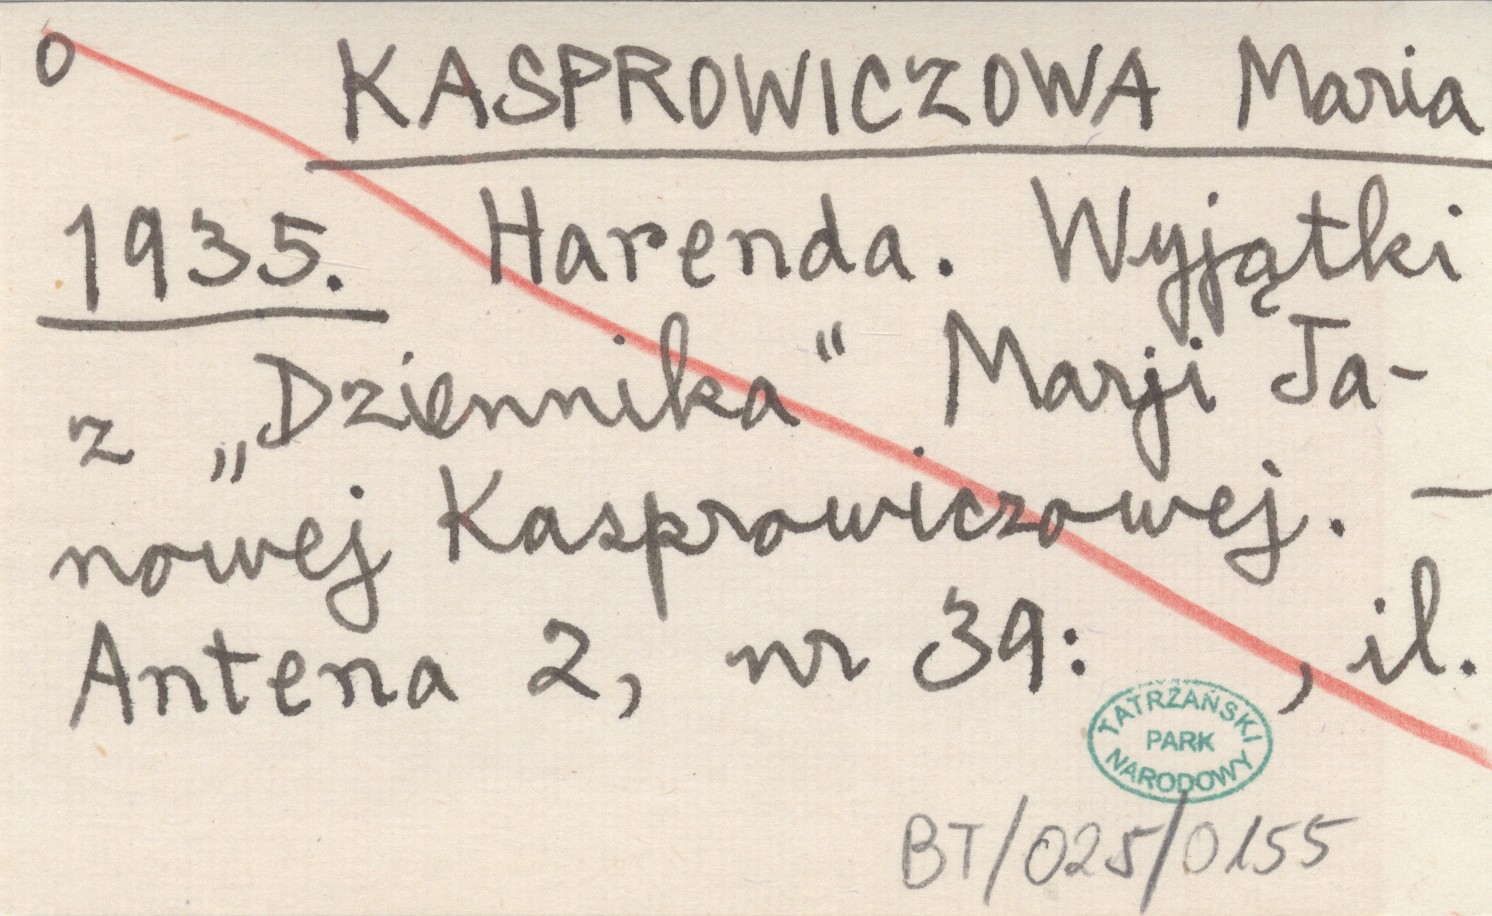 o KASPROWICZOWA Maria
1935. Harenda. Wyjątki
z „Dziennika“ Marji Ja-
nowej Kasprowiczowej. —
Antena 2, nr 39: , il.
TATRZAŃSKI
PARK
NARODOWY
BT/025/0155